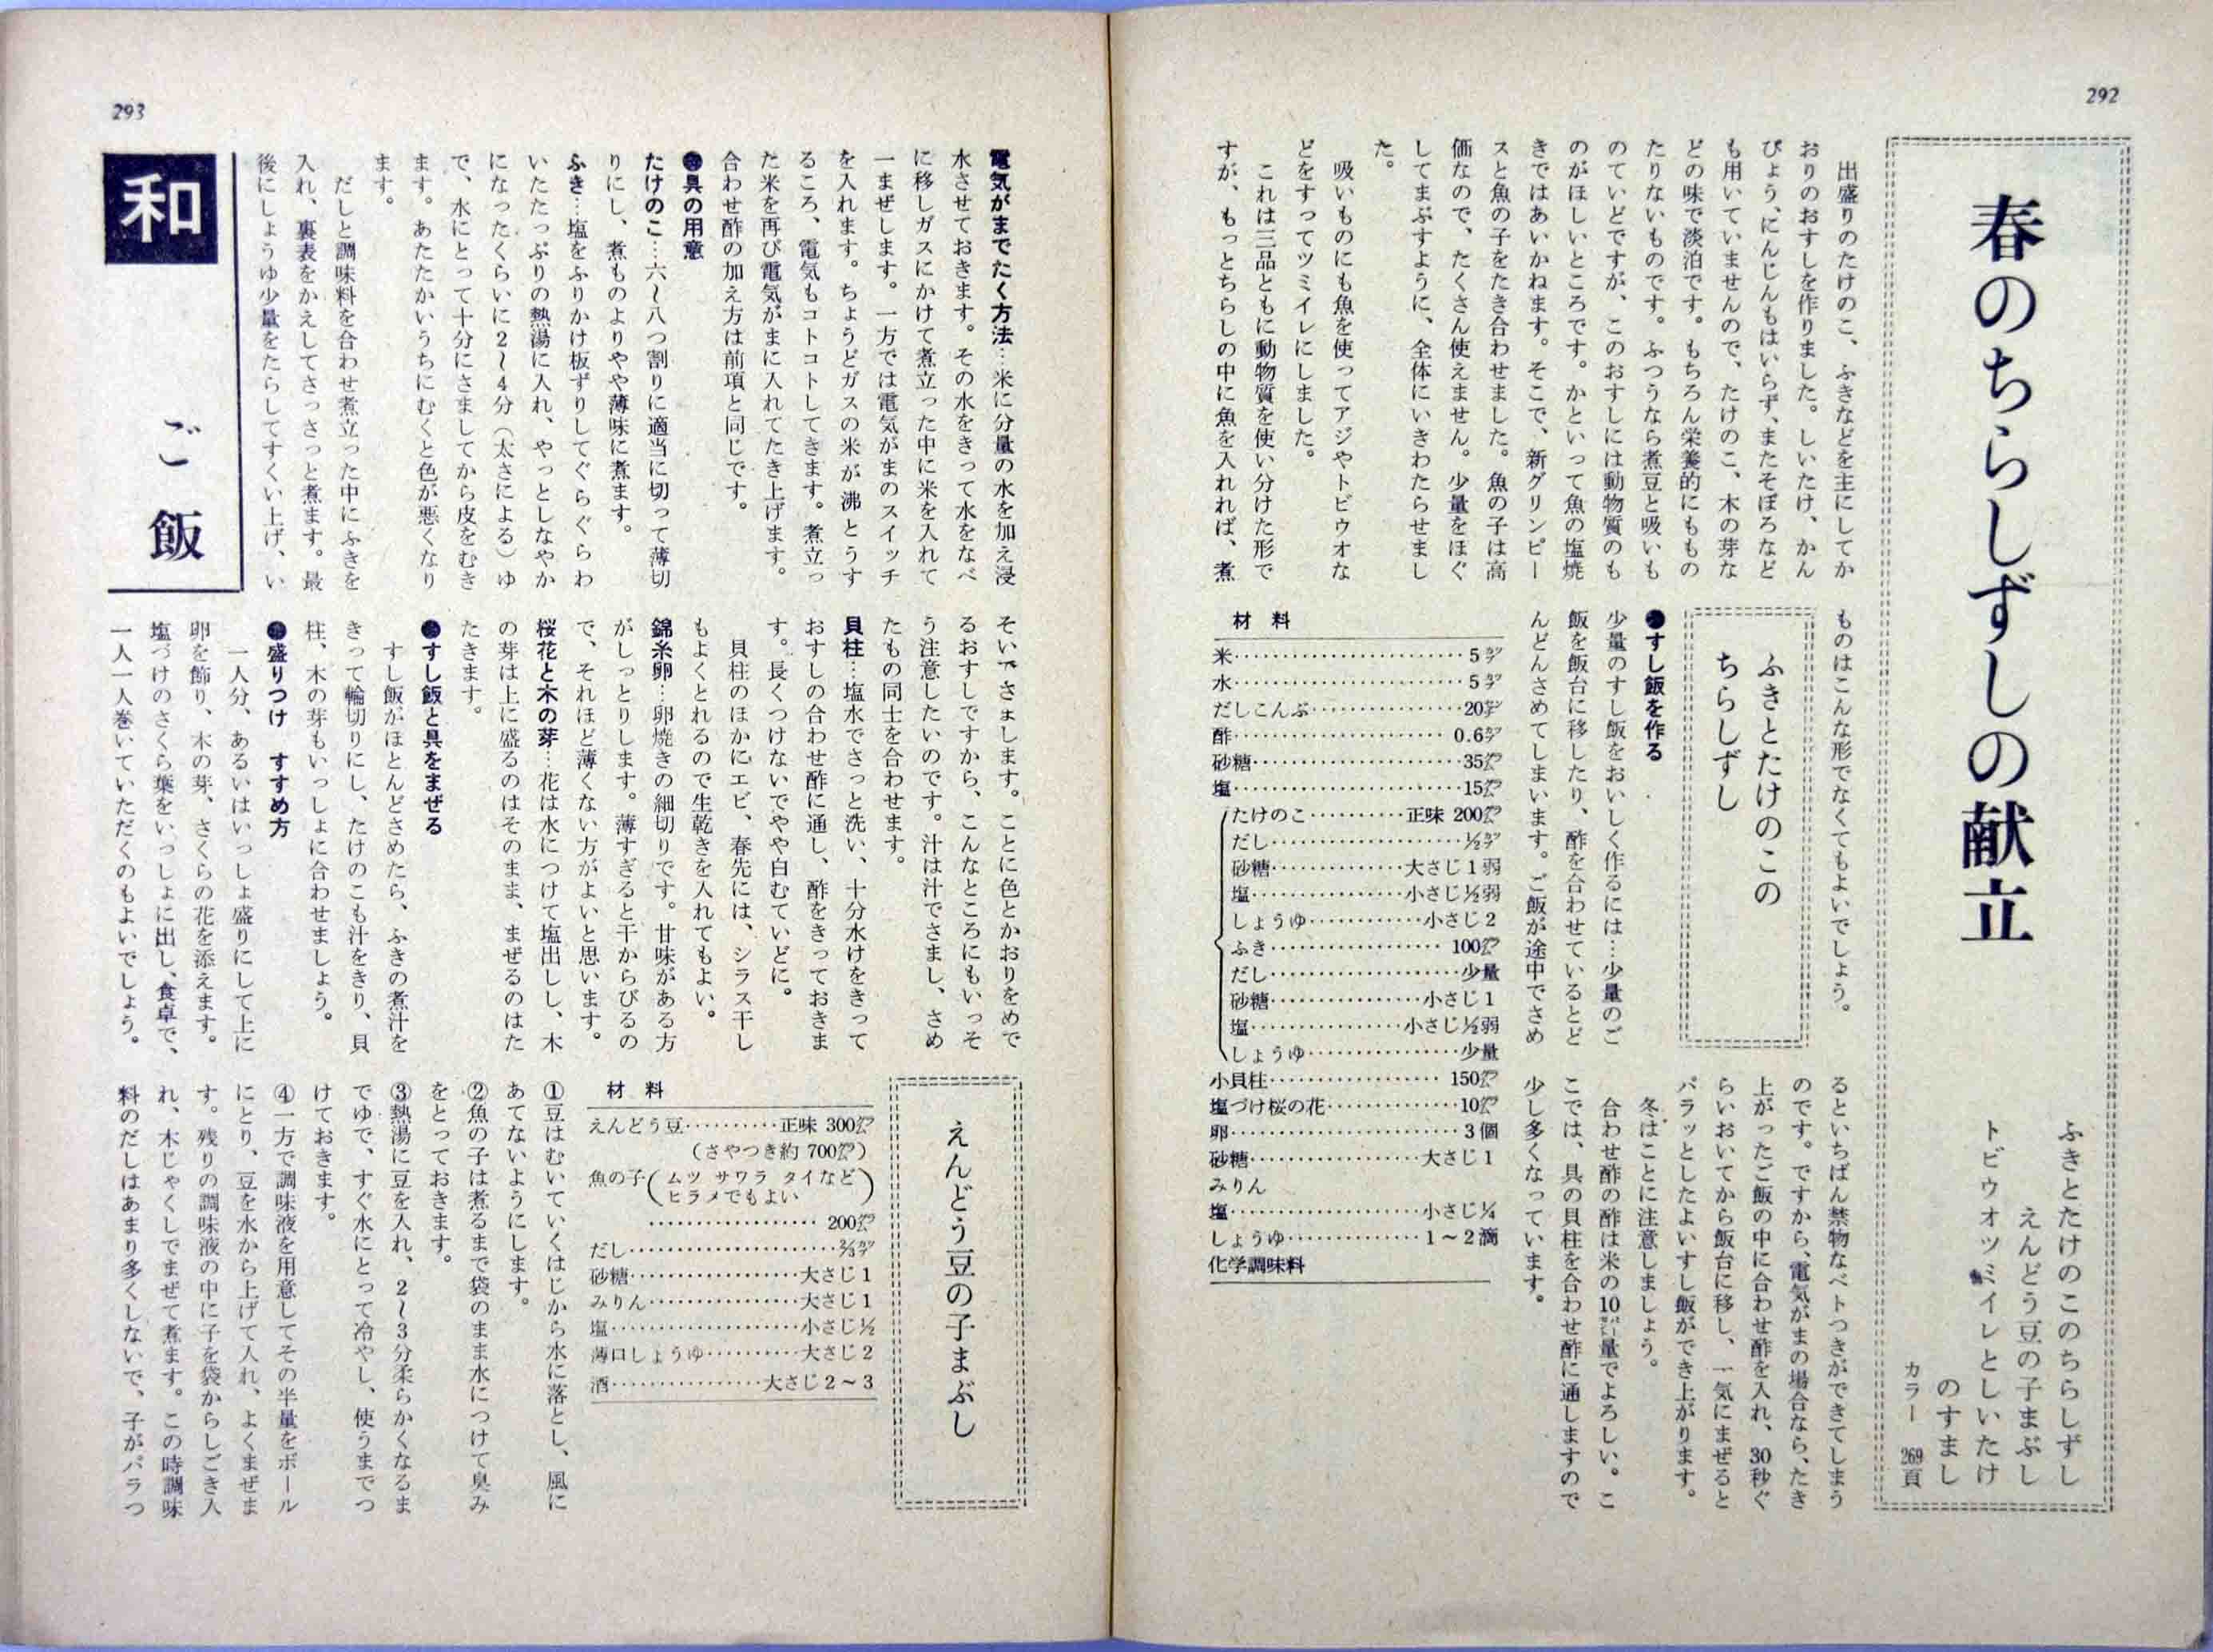 292
春のちらしずしの献立
ふきとたけのこのちらしずし
えんどう豆の子まぶし
トビウオツミイレとしいたけ
のすまし
カラー 269頁
出盛りのたけのこ、ふきなどを主にしてか
おりのおすしを作りました。しいたけ、かん
ぴょう、にんじんもはいらず、またそぼろなど
も用いていませんので、たけのこ、木の芽な
どの味で淡泊です。もちろん栄養的にももの
たりないものです。ふつうなら煮豆と吸いも
のていどですが、このおすしには動物質のも
のがほしいところです。かといって魚の塩焼
きではあいかねます。そこで、新グリンピー
スと魚の子をたき合わせました。魚の子は高
価なので、たくさん使えません。少量をほぐ
してまぶすように、全体にいきわたらせまし
た。
吸いものにも魚を使ってアジやトビウオな
どをすってツミイレにしました。
これは三品ともに動物質を使い分けた形で
すが、もっとちらしの中に魚を入れれば、煮
ものはこんな形でなくてもよいでしょう。
ふきとたけのこの
ちらしずし
●すし飯を作る
少量のすし飯をおいしく作るには…少量のご
飯を飯台に移したり、酢を合わせているとど
んどんさめてしまいます。ご飯が途中でさめ
るといちばん禁物なベトつきができてしまう
のです。ですから、電気がまの場合なら、たき
上がったご飯の中に合わせ酢を入れ、30秒ぐ
らいおいてから飯台に移し、一気にまぜると
パラッとしたよいすし飯ができ上がります。
冬はことに注意しましょう。
合わせ酢の酢は米の10㌫量でよろしい。こ
こでは、具の貝柱を合わせ酢に通しますので
少し多くなっています。
材料
米……………………5㌍
水……………………5㌍
だしこんぶ……………20㌢
酢……………………0.6㌍
砂糖…………………35㌘
塩……………………15㌘
たけのこ…………正味 200㌘
だし…………………½㌍
砂糖……………大さじ1弱
塩………………小さじ½弱
しょうゆ…………小さじ2
ふき…………………100㌘
だし…………………少量
砂糖………………小さじ1
塩………………小さじ½弱
しょうゆ………………少量
小貝柱…………………150㌘
塩づけ桜の花……………10㌘
卵……………………3個
砂糖………………大さじ1
みりん
塩…………………小さじ¼
しょうゆ……………1～2滴
化学調味料
電気がまでたく方法…米に分量の水を加え浸
水させておきます。その水をきって水をなべ
に移しガスにかけて煮立った中に米を入れて
一まぜします。一方では電気がまのスイッチ
を入れます。ちょうどガスの米が沸とうす
るころ、電気もコトコトしてきます。煮立っ
た米を再び電気がまに入れてたき上げます。
合わせ酢の加え方は前項と同じです。
●具の用意
たけのこ…六～八つ割りに適当に切って薄切
りにし、煮ものよりやや薄味に煮ます。
ふき…塩をふりかけ板ずりしてぐらぐらわ
いたたっぷりの熱湯に入れ、やっとしなやか
になったくらいに2～4分（太さによる）ゆ
で、水にとって十分にさましてから皮をむき
ます。あたたかいうちにむくと色が悪くなり
ます。
だしと調味料を合わせ煮立った中にふきを
入れ、裏表をかえしてさっさっと煮ます。最
後にしょうゆ少量をたらしてすくい上げ、い
和
ご飯
293
そいでさまします。ことに色とかおりをめで
るおすしですから、こんなところにもいっそ
う注意したいのです。汁は汁でさまし、さめ
たもの同士を合わせます。
貝柱…塩水でさっと洗い、十分水けをきって
おすしの合わせ酢に通し、酢をきっておきま
す。長くつけないでやや白むていどに。
貝柱のほかにエビ、春先には、シラス干し
もよくとれるので生乾きを入れてもよい。
錦糸卵…卵焼きの細切りです。甘味がある方
がしっとりします。薄すぎると干からびるの
で、それほど薄くない方がよいと思います。
桜花と木の芽…花は水につけて塩出しし、木
の芽は上に盛るのはそのまま、まぜるのはた
たきます。
●すし飯と具をまぜる
すし飯がほとんどさめたら、ふきの煮汁を
きって輪切りにし、たけのこも汁をきり、貝
柱、木の芽もいっしょに合わせましょう。
●盛りつけ すすめ方
一人分、あるいはいっしょ盛りにして上に
卵を飾り、木の芽、さくらの花を添えます。
塩づけのさくら葉をいっしょに出し、食卓で、
一人一人巻いていただくのもよいでしょう。
えんどう豆の子まぶし
材料
えんどう豆…………正味 300㌘
（さやつき約 700㌘）
魚の子（ムツ サワラ タイなど
ヒラメでもよい）
………………200㌘
だし……………………⅔㌍
砂糖………………大さじ1
みりん……………大さじ1
塩…………………小さじ½
薄口しょうゆ………大さじ2
酒……………大さじ2～3
①豆はむいていくはじから水に落とし、風に
あてないようにします。
②魚の子は煮るまで袋のまま水につけて臭み
をとっておきます。
③熱湯に豆を入れ、2～3分柔らかくなるま
でゆで、すぐ水にとって冷やし、使うまでつ
けておきます。
④一方で調味液を用意してその半量をボール
にとり、豆を水から上げて入れ、よくまぜま
す。残りの調味液の中に子を袋からしごき入
れ、木じゃくしでまぜて煮ます。この時調味
料のだしはあまり多くしないで、子がパラつ